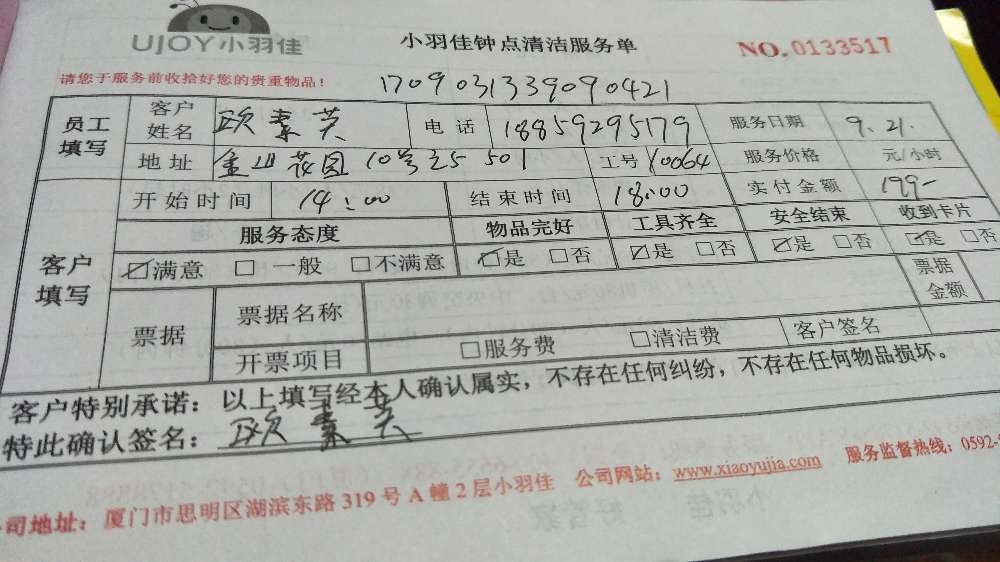 UJOY小羽佳
小羽佳钟点清洁服务单
NO.0133517
请您于服务前收拾好您的贵重物品!
1709031339090421
员工填写 客户姓名 欧素芡 电话 18859295179 服务日期 9.21.
地址 金山花园10号之5 501 工号 10064 服务价格 元/小时
客户填写 开始时间 14:00 结束时间 18:00 实付金额 199-
服务态度 物品完好 工具齐全 安全结束 收到卡片
☑满意 □一般 □不满意 ☑是 □否 ☑是 □否 ☑是 □否 ☑是 □否
票据 票据名称 票据金额
开票项目 □服务费 □清洁费 客户签名
客户特别承诺:以上填写经本人确认属实,不存在任何纠纷,不存在任何物品损坏。
特此确认签名:欧素芡
司地址:厦门市思明区湖滨东路319号A幢2层小羽佳 公司网站:www.xiaoyujia.com 服务监督热线:0592-